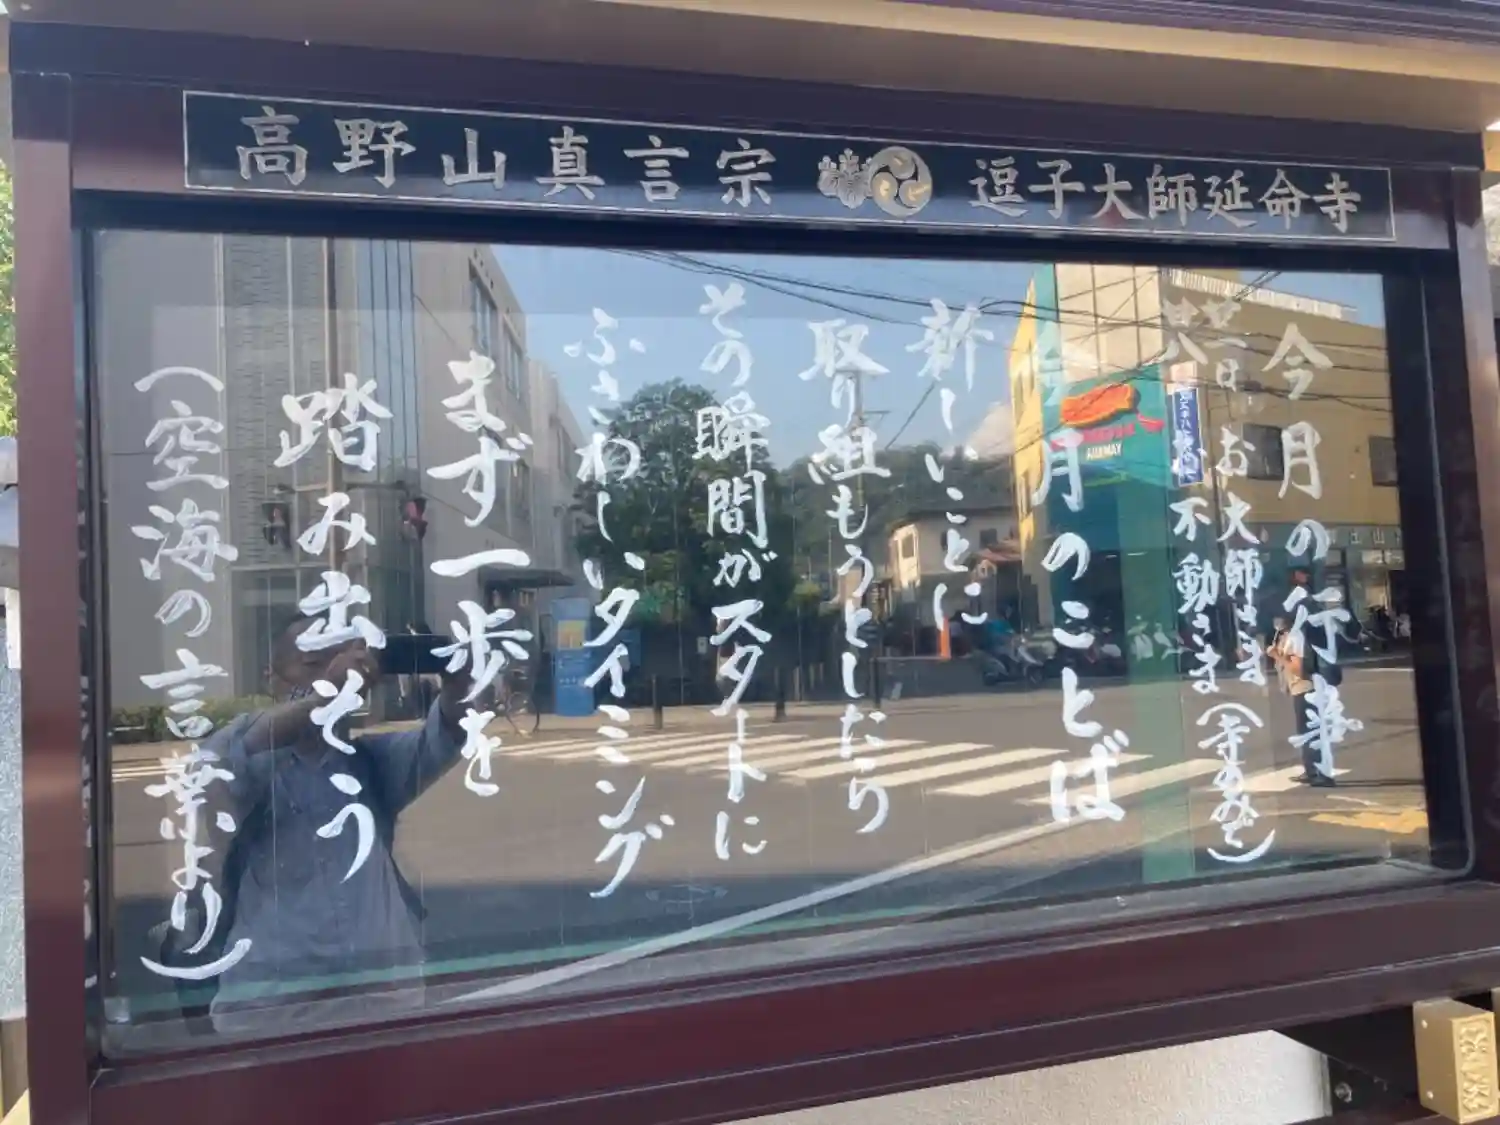 高野山真言宗 逗子大師延命寺
今月の行事
廿一日 お大師さま
廿八日 不動さま(寺のみで)
今月のことば
新しいことに
取り組もうとしたら
その瞬間がスタートに
ふさわしいタイミング
まず一歩を
踏み出そう
(空海の言葉より)